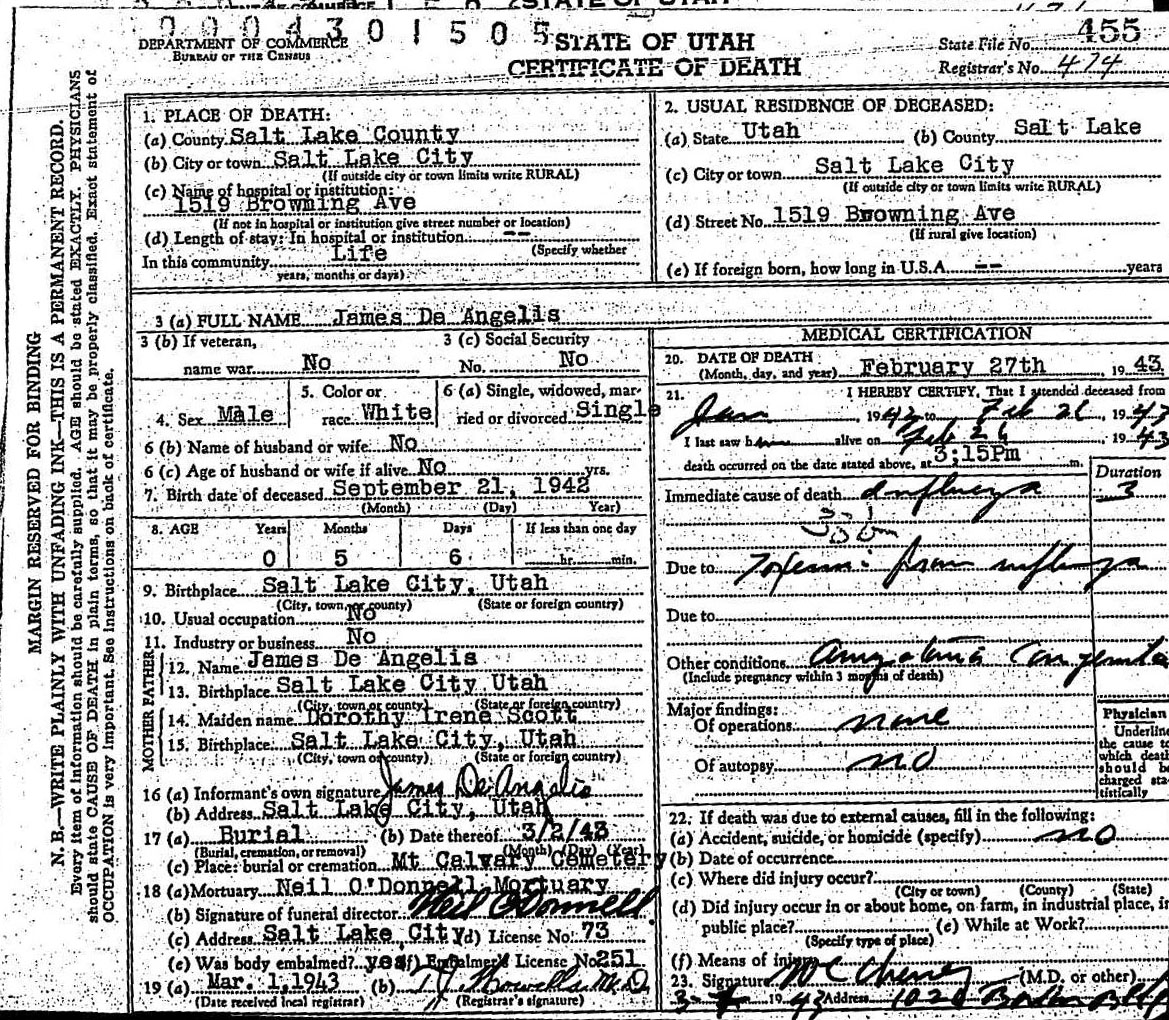 STATE OF UTAH
0 0 0 4 3 0 1 5 0 5
DEPARTMENT OF COMMERCE
BUREAU OF THE CENSUS
STATE OF UTAH
CERTIFICATE OF DEATH
State File No. 455
Registrar's No. 474
MARGIN RESERVED FOR BINDING
N. B.—WRITE PLAINLY WITH UNFADING INK—THIS IS A PERMANENT RECORD.
Every item of information should be carefully supplied. AGE should be stated EXACTLY. PHYSICIANS
should state CAUSE OF DEATH in plain terms, so that it may be properly classified. Exact statement of
OCCUPATION is very important. See instructions on back of certificate.
1. PLACE OF DEATH:
(a) County Salt Lake County
(b) City or town Salt Lake City
(If outside city or town limits write RURAL)
(c) Name of hospital or institution:
1519 Browning Ave
(If not in hospital or institution give street number or location)
(d) Length of stay: In hospital or institution --
(Specify whether
In this community Life
years, months or days)
2. USUAL RESIDENCE OF DECEASED:
(a) State Utah (b) County Salt Lake
(c) City or town Salt Lake City
(If outside city or town limits write RURAL)
(d) Street No. 1519 Browning Ave
(If rural give location)
(e) If foreign born, how long in U.S.A. -- years
3 (a) FULL NAME James De Angelis
3 (b) If veteran, 3 (c) Social Security
name war No No. No
5. Color or 6 (a) Single, widowed, mar-
4. Sex Male race White ried or divorced Single
6 (b) Name of husband or wife No
6 (c) Age of husband or wife if alive No yrs.
7. Birth date of deceased September 21, 1942
(Month) (Day) Year)
8. AGE Years Months Days If less than one day
0 5 6 hr. min.
9. Birthplace Salt Lake City, Utah
(City, town, or county) (State or foreign country)
10. Usual occupation No
11. Industry or business No
FATHER
12. Name James De Angelis
13. Birthplace Salt Lake City Utah
(City, town or county) (State or foreign country)
MOTHER
14. Maiden name Dorothy Irene Scott
15. Birthplace Salt Lake City, Utah
(City, town or county) (State or foreign country)
16 (a) Informant's own signature James De Angelis
(b) Address Salt Lake City, Utah
17 (a) Burial (b) Date thereof 3/2/43
(Burial, cremation, or removal) (Month) (Day) (Year)
(c) Place: burial or cremation Mt Calvary Cemetery
18 (a) Mortuary Neil O'Donnell Mortuary
(b) Signature of funeral director Neil O'Donnell
(c) Address Salt Lake City (d) License No. 73
(e) Was body embalmed? yes (f) Embalmer's License No. 251
19 (a) Mar. 1, 1943 (b) T J Howells M.D.
(Date received local registrar) (Registrar's signature)
MEDICAL CERTIFICATION
20. DATE OF DEATH
(Month, day, and year) February 27th, 19 43
21. I HEREBY CERTIFY, That I attended deceased from
Jan 1943 to Feb 26, 1943
I last saw him alive on Feb 26, 1943
death occurred on the date stated above, at 3:15Pm m.
Duration
Immediate cause of death Influenza 3
Due to from influenza
Due to
Other conditions Congenita
(Include pregnancy within 3 months of death)
Major findings:
Of operations none
Of autopsy no
Physician
Underline
the cause to
which death
should be
charged sta-
tistically
22. If death was due to external causes, fill in the following:
(a) Accident, suicide, or homicide (specify) no
(b) Date of occurrence
(c) Where did injury occur?
(City or town) (County) (State)
(d) Did injury occur in or about home, on farm, in industrial place, in
public place? (e) While at Work?
(Specify type of place)
(f) Means of injury
23. Signature (M.D. or other)
1943 Address 1020 Boston Bldg